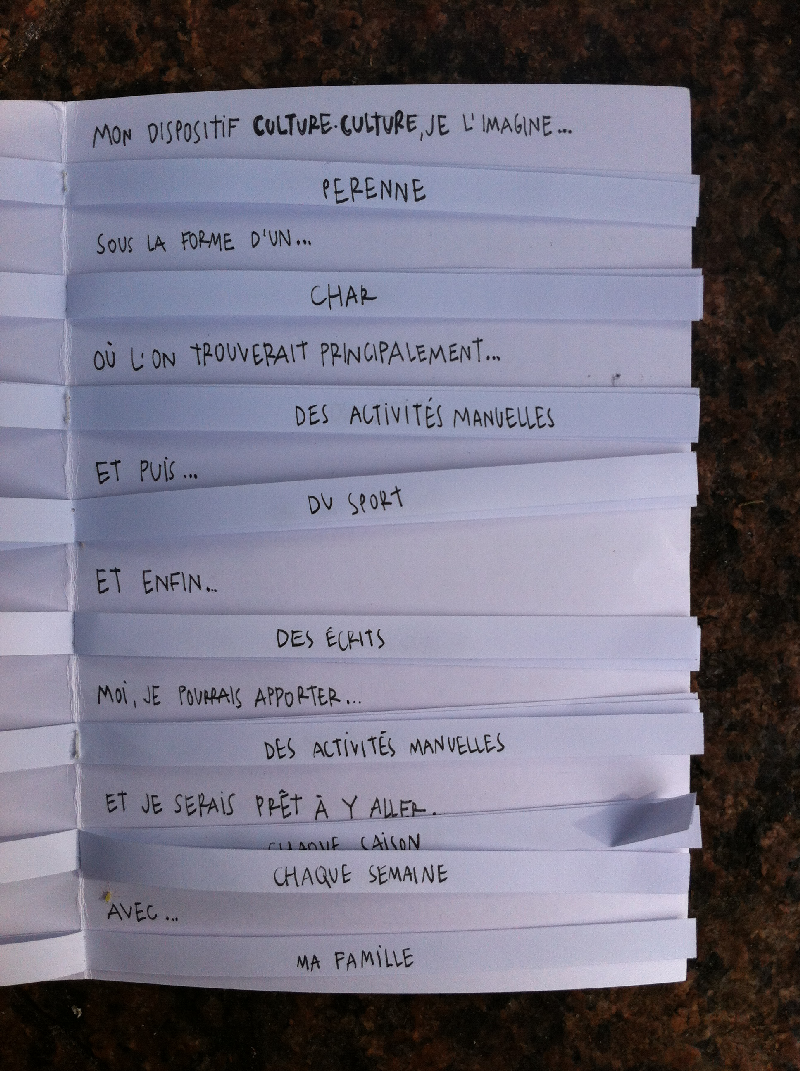 MON DISPOSITIF CULTURE·CULTURE, JE L'IMAGINE...
PERENNE
SOUS LA FORME D'UN...
CHAR
OÙ L'ON TROUVERAIT PRINCIPALEMENT...
DES ACTIVITÉS MANUELLES
ET PUIS...
DU SPORT
ET ENFIN...
DES ÉCRITS
MOI, JE POURRAIS APPORTER...
DES ACTIVITÉS MANUELLES
ET JE SERAIS PRÊT À Y ALLER.
CHAQUE SAISON
CHAQUE SEMAINE
AVEC...
MA FAMILLE